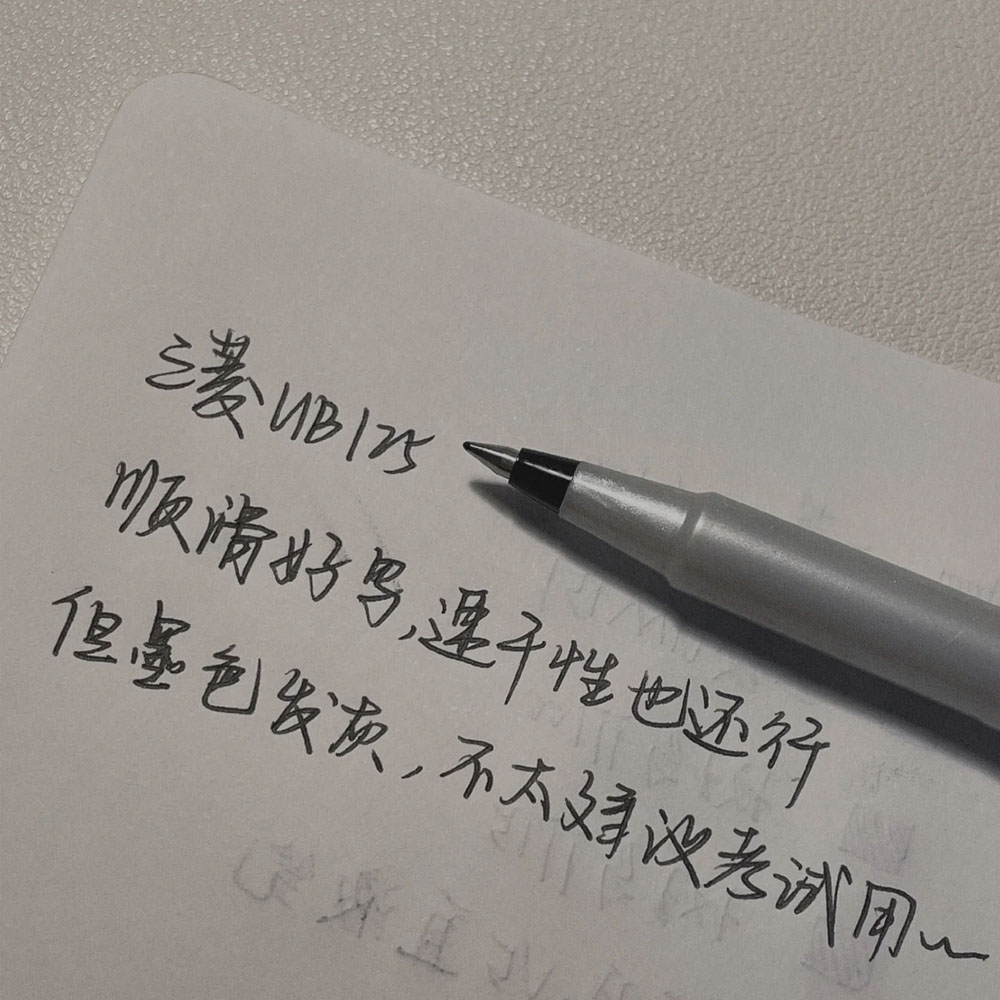 三菱UB125
顺滑好写,速干性也还行
但墨色发灰,不太建议考试用~